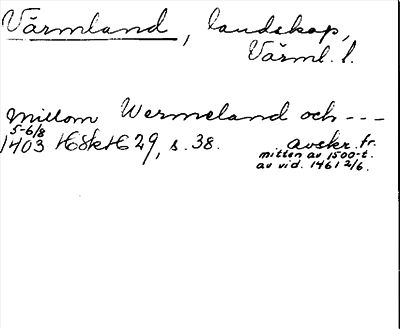 Värmland, landskap,
Värml. l.
Mittom Wermeland och ---
5-6/8
1403 HSkH 29, s. 38. avskr. fr.
mitten av 1500-t.
av vid. 1461 2/6.